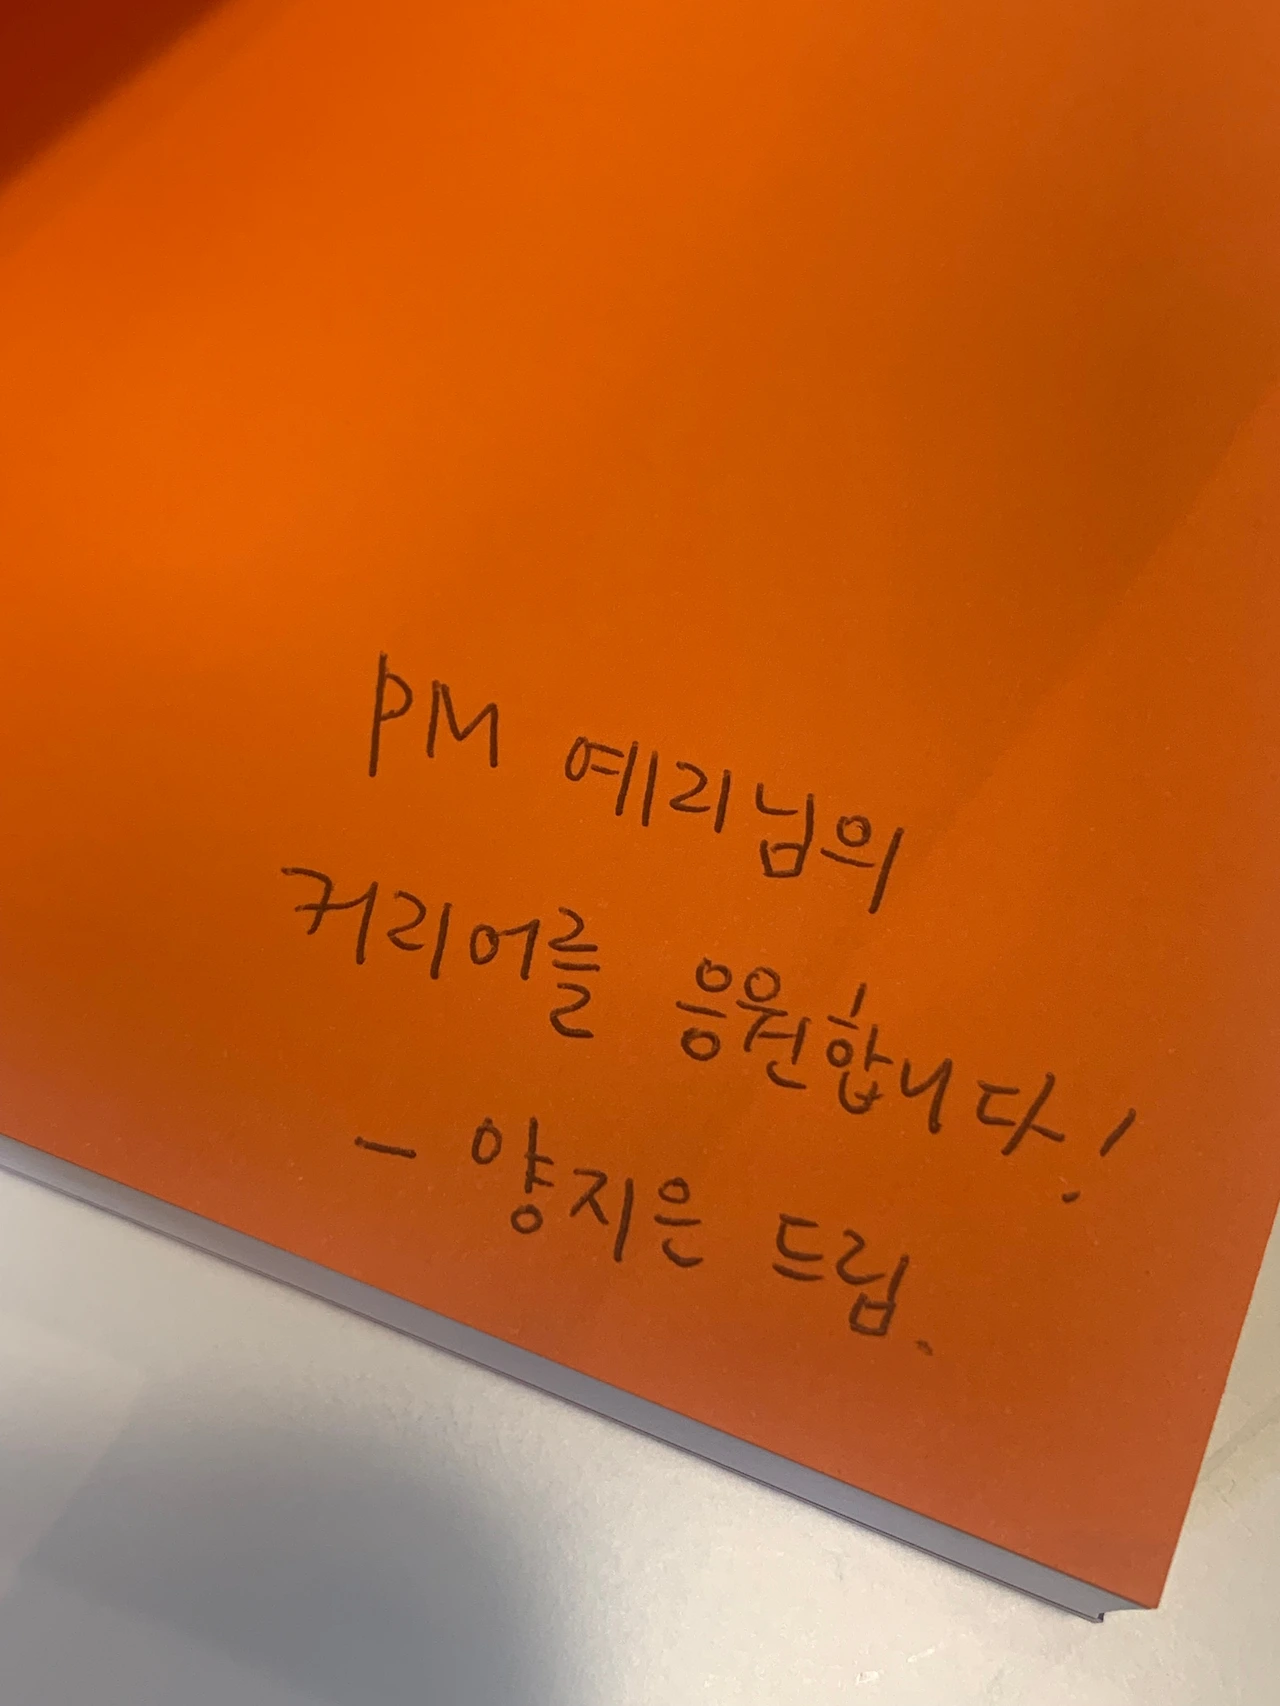 PM 예리님의
커리어를 응원합니다!
- 양지은 드림.